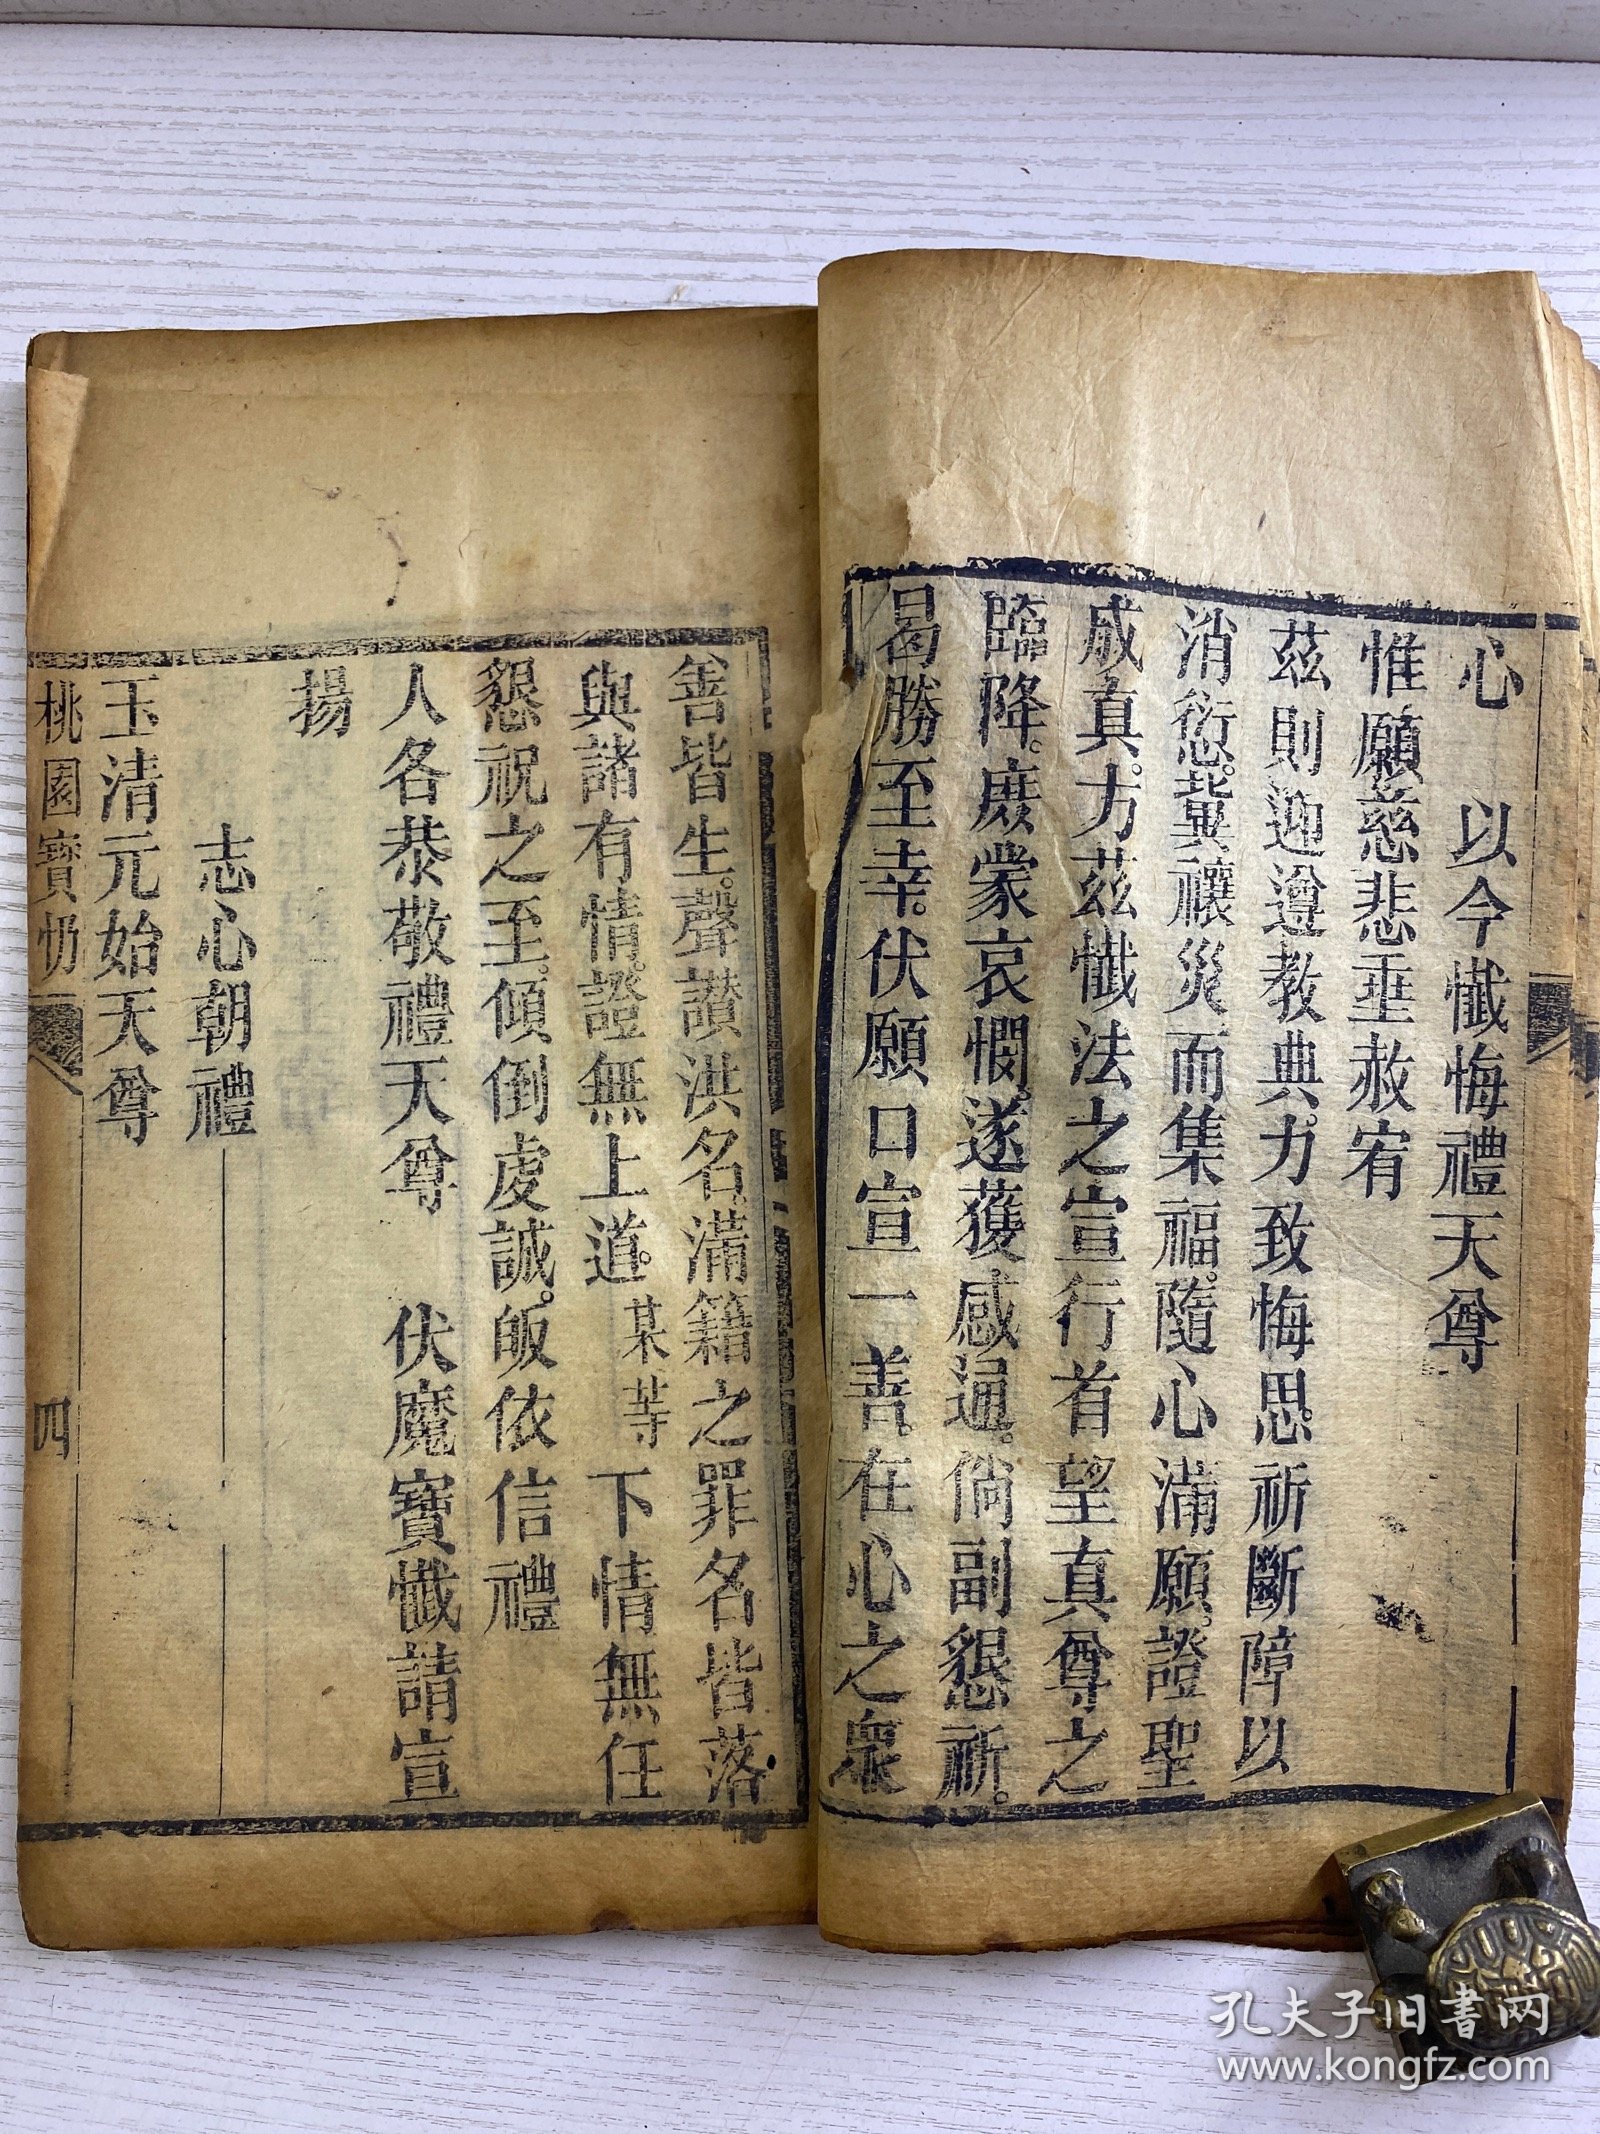 心　以今懺悔禮天尊
惟願慈悲垂赦宥
茲則迎遵教典力致悔思祈斷障以
消愆冀禳災而集福隨心滿願證聖
成真力茲懺法之宣行首望真尊之
臨降庶蒙哀憫遂獲感通倘副懇祈
曷勝至幸伏願口宣一善在心之衆
善皆生聲讃洪名滿籍之罪名皆落
與諸有情證無上道某等下情無任
懇祝之至傾倒虔誠皈依信禮
人各恭敬禮天尊　伏魔寶懺請宣
揚
志心朝禮
玉清元始天尊
桃園寶
四
孔夫子旧书网
www.kongfz.com